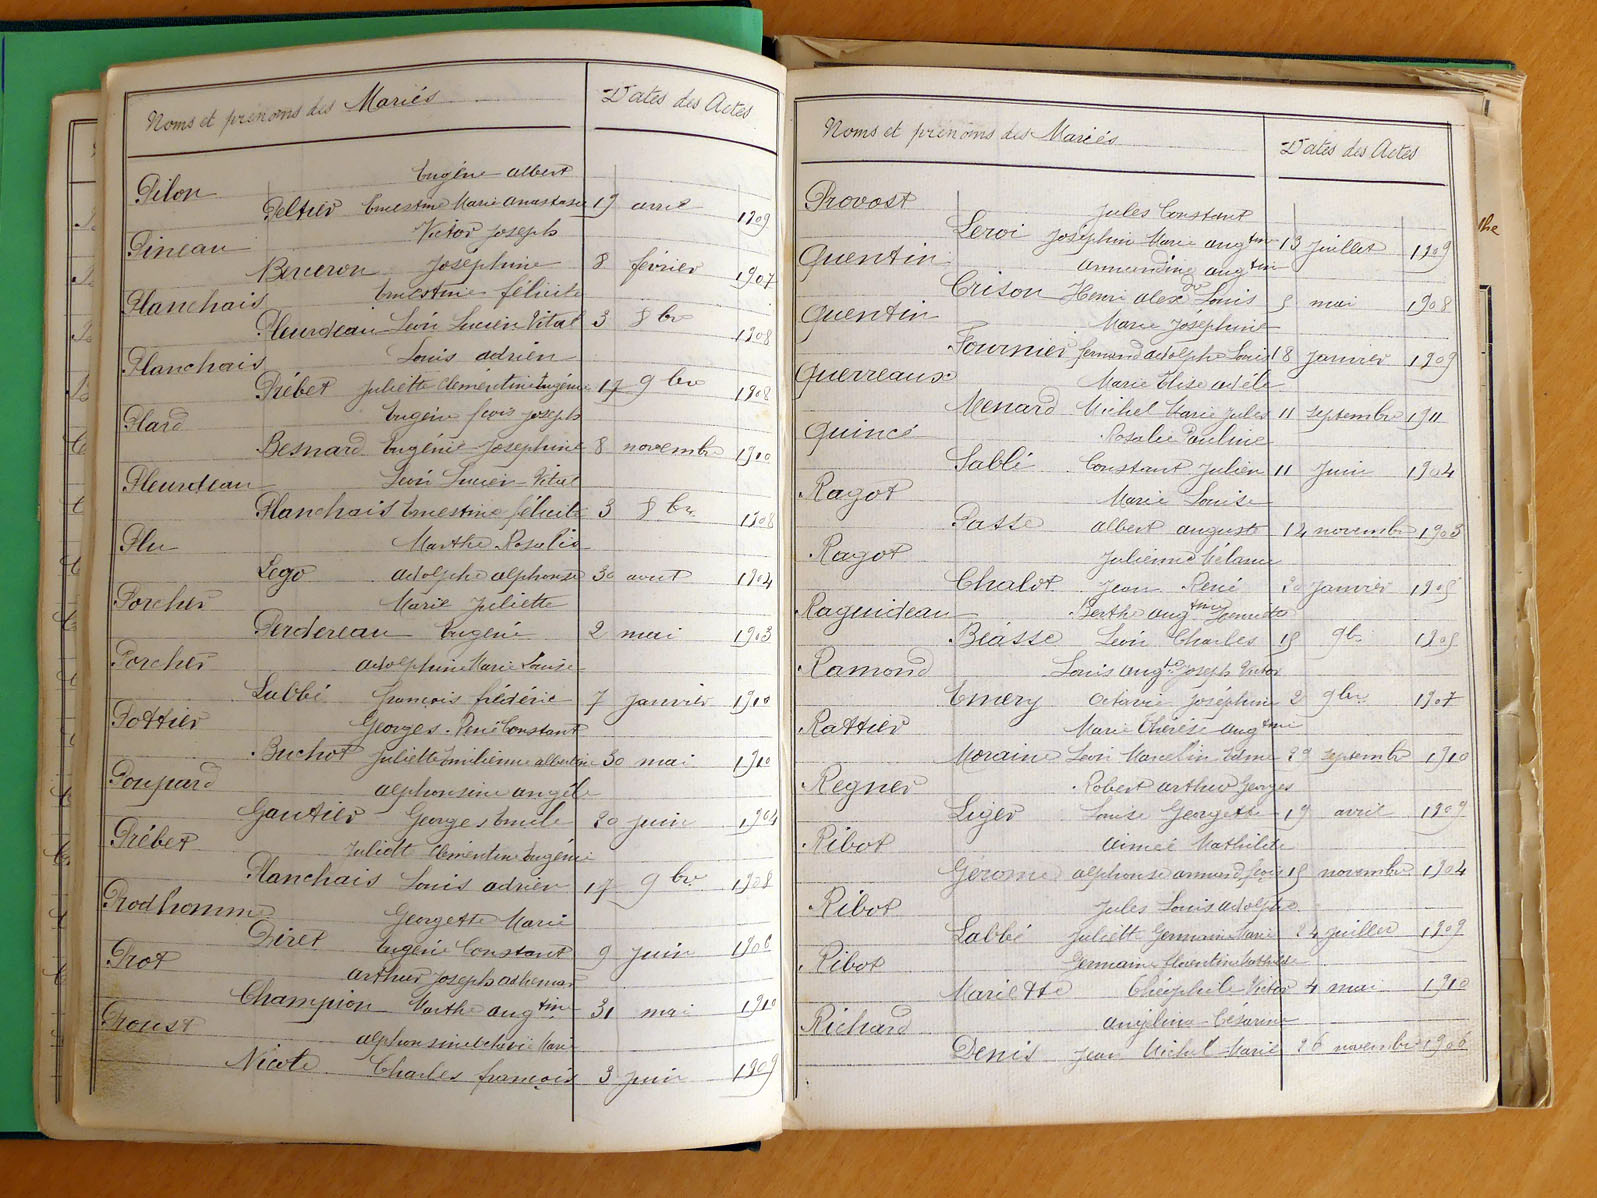 Noms et prénoms des Mariés Dates des Actes
Eugène Albert
Pilon
Peltier Ernestine Marie Anastasie 19 avril 1909
Victor Joseph
Pineau
Bergeron Joséphine 8 février 1907
Ernestine félicité
Planchais
Pleurdeau Léon Lucien Vital 3 8bre 1908
Louis Adrien
Planchais
Prébet Juliette Clémentine Eugénie 17 9bre 1908
Eugène fçois Joseph
Plard
Besnard Eugénie Joséphine 8 novembre 1910
Léon Lucien Vital
Pleurdeau
Planchais Ernestine félicité 3 8bre 1908
Marthe Rosalie
Plu
Lego Adolphe alphonse 30 aout 1904
Marie Juliette
Porcher
Perdereau Eugène 2 mai 1903
Adolphine Marie Louise
Porcher
Labbé françois frédéric 7 janvier 1910
Georges René Constant
Pottier
Buchot Juliette Emilienne albertine 30 mai 1910
alphonsine angèle
Poupard
Gautier Georges Emile 20 juin 1904
Juliette Clémentine Eugénie
Prébet
Planchais Louis adrien 17 9bre 1908
Georgette Marie
Prodhomme
Piret Eugène Constant 9 juin 1906
arthur Joseph adhemar
Prot
Champion Marthe augtine 31 mai 1910
alphonsine Octavie Marie
Proust
Nicole Charles françois 3 juin 1909
Noms et prénoms des Mariés Dates des Actes
Provost
Jules Constant
Leroi Joséphine Marie augtine 13 juillet 1909
Quentin
armandine augtine
Crison Henri alexdre Louis 5 mai 1908
Quentin
Marie Joséphine
Fournier fernand adolphe Louis 18 janvier 1909
Querreaux
Marie Elise adèle
Menard Michel Marie Jules 11 septembre 1911
Quincé
Rosalie Pauline
Sablé Constant Julien 11 juin 1904
Ragot
Marie Louise
Passe albert auguste 14 novembre 1903
Ragot
Julienne Mélanie
Chalot Jean René 30 janvier 1905
Raguideau
Berthe augtine
Béasse Léon Charles 15 9bre 1905
Ramond
Louis augte Joseph Victor
Emery Octavie Joséphine 2 9bre 1907
Rattier
Marie Thérèse augtine
Moraine Léon Marcelin Edme 29 septembre 1910
Regner
Robert arthur Georges
Liger Louise Georgette 19 avril 1909
Ribot
Aimée Mathilde
Gérome alphonse armand fçois 15 novembre 1904
Ribot
Jules Louis Adolphe
Labbé Juliette Germaine Marie 24 juillet 1909
Ribot
Germaine florentine Mathilde
Mariette Théophile Victor 4 mai 1910
Richard
Angélina Césarine
Denis Jean Michel Marie 26 novembre 1906